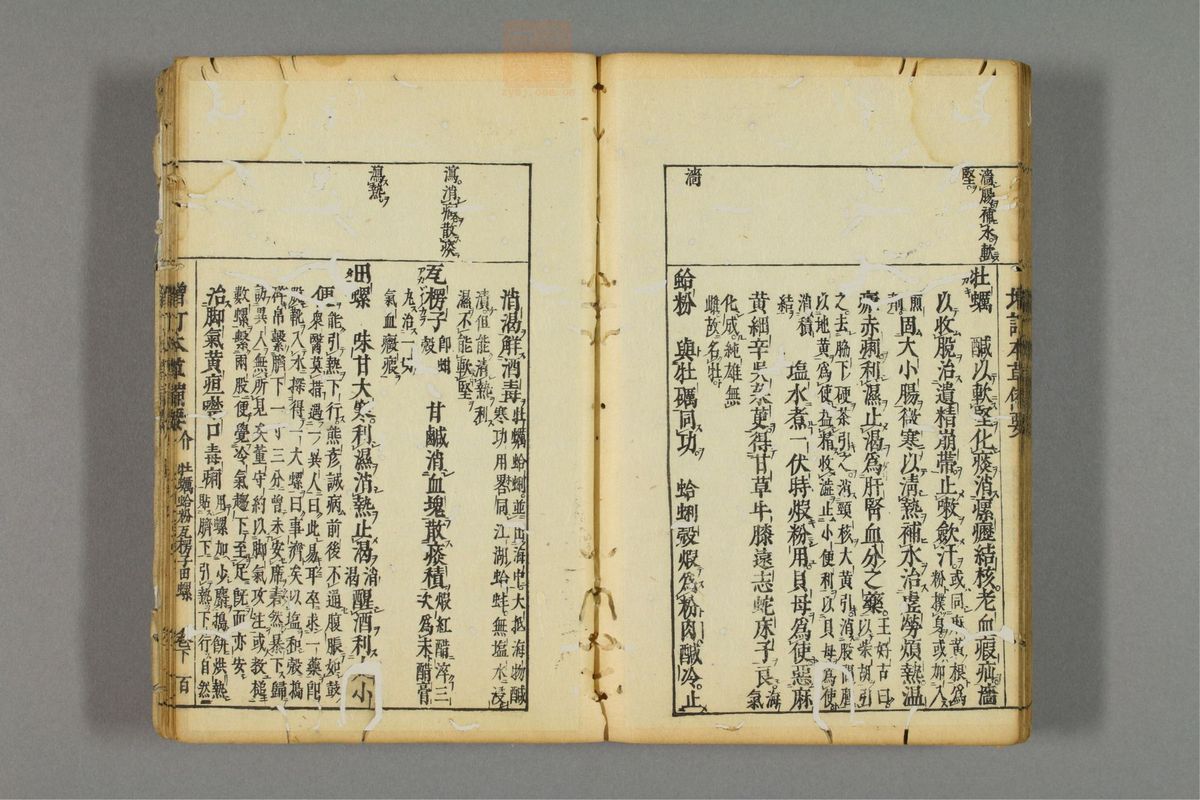 濇腸補水軟
堅
濇
牡蠣 鹹以軟堅化痰消瘰癧結核老血瘕疝濇
以收脫治遺精崩帶止嗽斂汗或同麻黃根為粉撲身或加入煎劑
固大小腸微寒以清熱補水治虛勞煩熱溫
瘧赤痢利濕止渴為肝腎血分之藥王好古曰以柴胡引
之去脇下硬茶引之消頸核大黃引消股間腫
以地黃為使益精收澁止小便利以貝母為使
消積結 塩水煮一伏時煅粉用貝母為使惡麻
黃細辛吳茱萸得甘草牛膝遠志蛇床子良海氣
化成純雄無雌故名牡
蛤粉 與牡礪同功 蛤蜊殼煅為粉肉鹹冷止
瀉消癥散痰
瀉熱
消渴解酒毒牡蠣蛤蜊並出海中大抵海物鹹
寒功用畧同江湖蛤蚌無塩水浸
漬但能清熱利
濕不能軟堅
瓦楞子即蚶殼 甘鹹消血塊散痰積煅紅醋淬三次為末醋膏
丸治一切
氣血癥瘕
田螺 味甘大寒利濕消熱止渴醒酒利小
便能引熱下行熊彥誠病前後不通腹脹如鼓
眾醫莫措遇一異人曰此易耳卒求一藥即
靴入水探得一大螺曰事濟矣以塩和殼搗
帛繫臍下一寸三分曾未安席砉然暴下歸
訪異人無所見矣董守約以脚氣攻注或教搥
數螺繫兩股便覺冷氣趨下至足既而亦安
治脚氣黃疸噤口毒痢用螺加少麝搗餅烘熱
貼臍下引熱下行自然
增訂本草備要 介 牡蠣蛤粉瓦楞子田螺